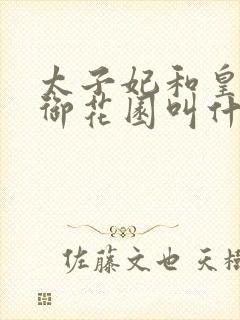 太子妃和皇
御花园叫什
佐藤文也 天樹